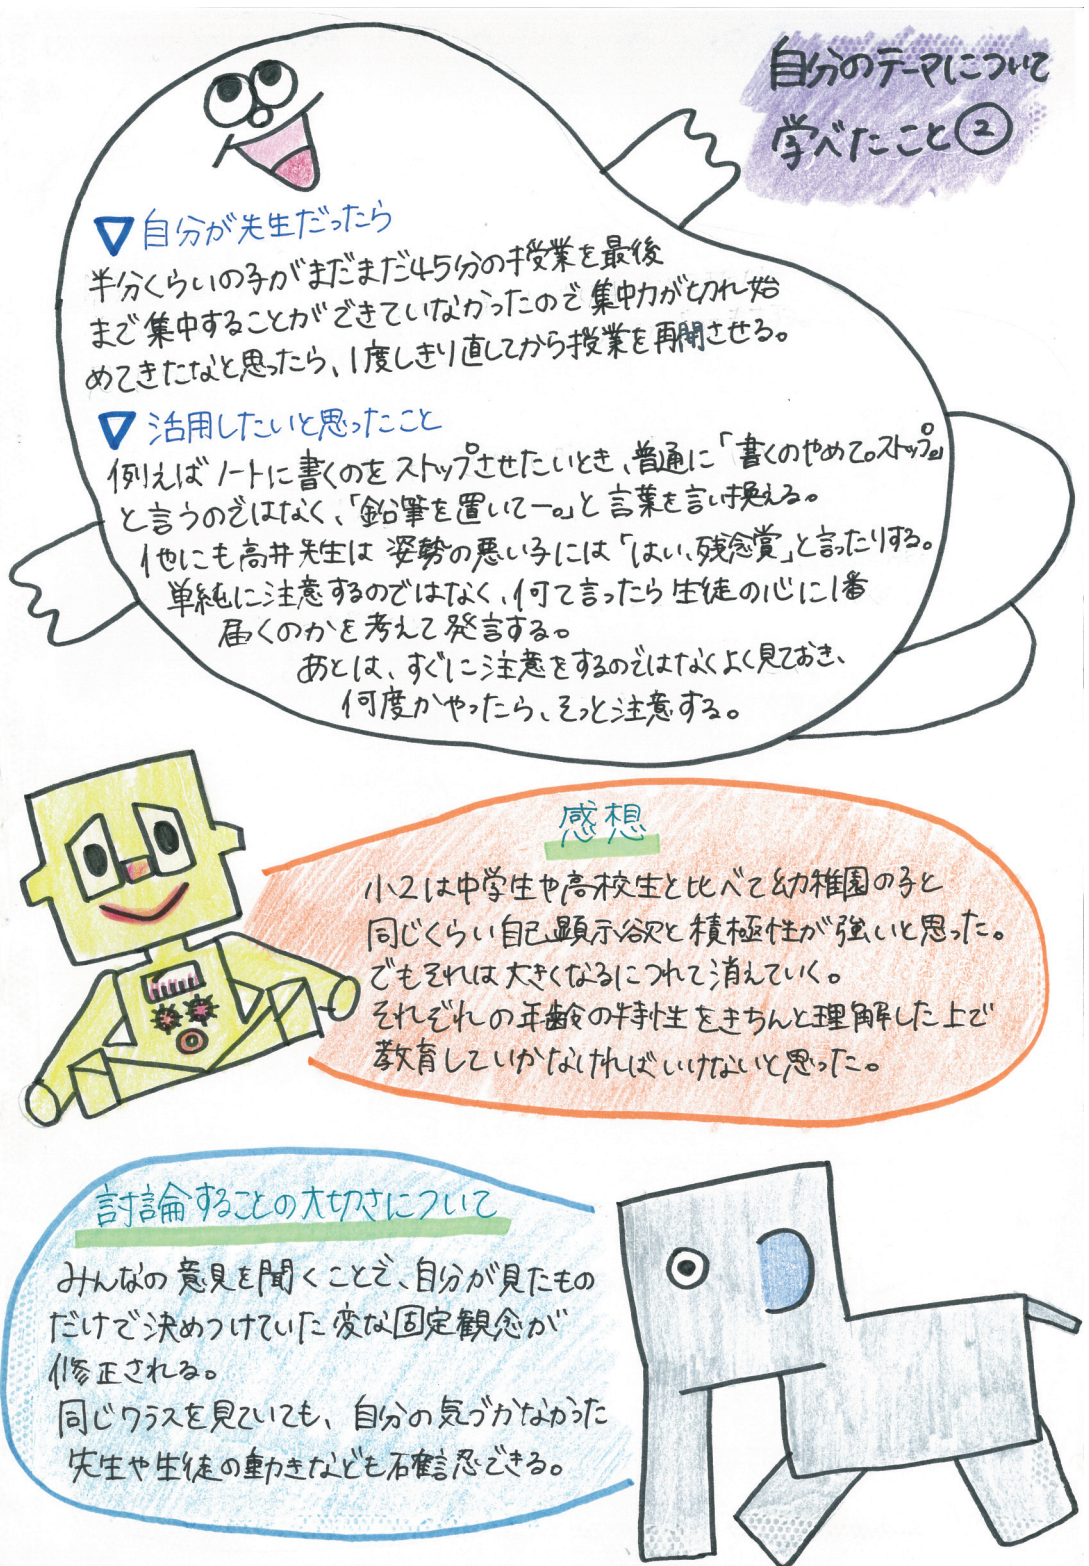 自分のテーマについて
学べたこと②
▽自分が先生だったら
半分くらいの子がまだまだ45分の授業を最後
まで集中することができていなかったので集中力が切れ始
めてきたなと思ったら、1度しきり直してから授業を再開させる。
▽活用したいと思ったこと
例えばノートに書くのをストップさせたいとき、普通に「書くのやめて。ストップ。」
と言うのではなく、「鉛筆を置いてー。」と言葉を言い換える。
他にも高井先生は姿勢の悪い子には「はい、残念賞」と言ったりする。
単純に注意するのではなく、何て言ったら生徒の心に1番
届くのかを考えて発言する。
あとは、すぐに注意をするのではなくよく見ておき、
何度かやったら、そっと注意する。
感想
小2は中学生や高校生と比べて幼稚園の子と
同じくらい自己顕示欲と積極性が強いと思った。
でもそれは大きくなるにつれて消えていく。
それぞれの年齢の特性をきちんと理解した上で
教育していかなければいけないと思った。
討論することの大切さについて
みんなの意見を聞くことで、自分が見たもの
だけで決めつけていた変な固定観念が
修正される。
同じクラスを見ていても、自分の気づかなかった
先生や生徒の動きなども確認できる。